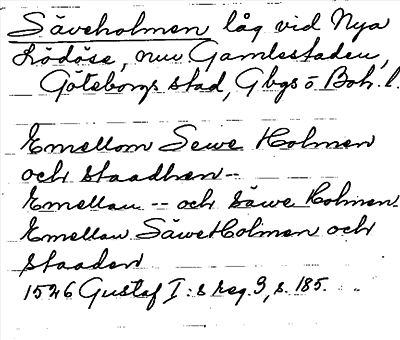 Säveholmen låg vid Nya
Lödöse, nuv Gamlestaden,
Göteborgs stad, Gbgs o Boh. l.
Emellom Sewe Holmen
och staadhen --
Emellan -- och Säwe Holmen.
Emellan SäweHolmen och
staaden
1546 Gustaf I:s reg. 9, s. 185.